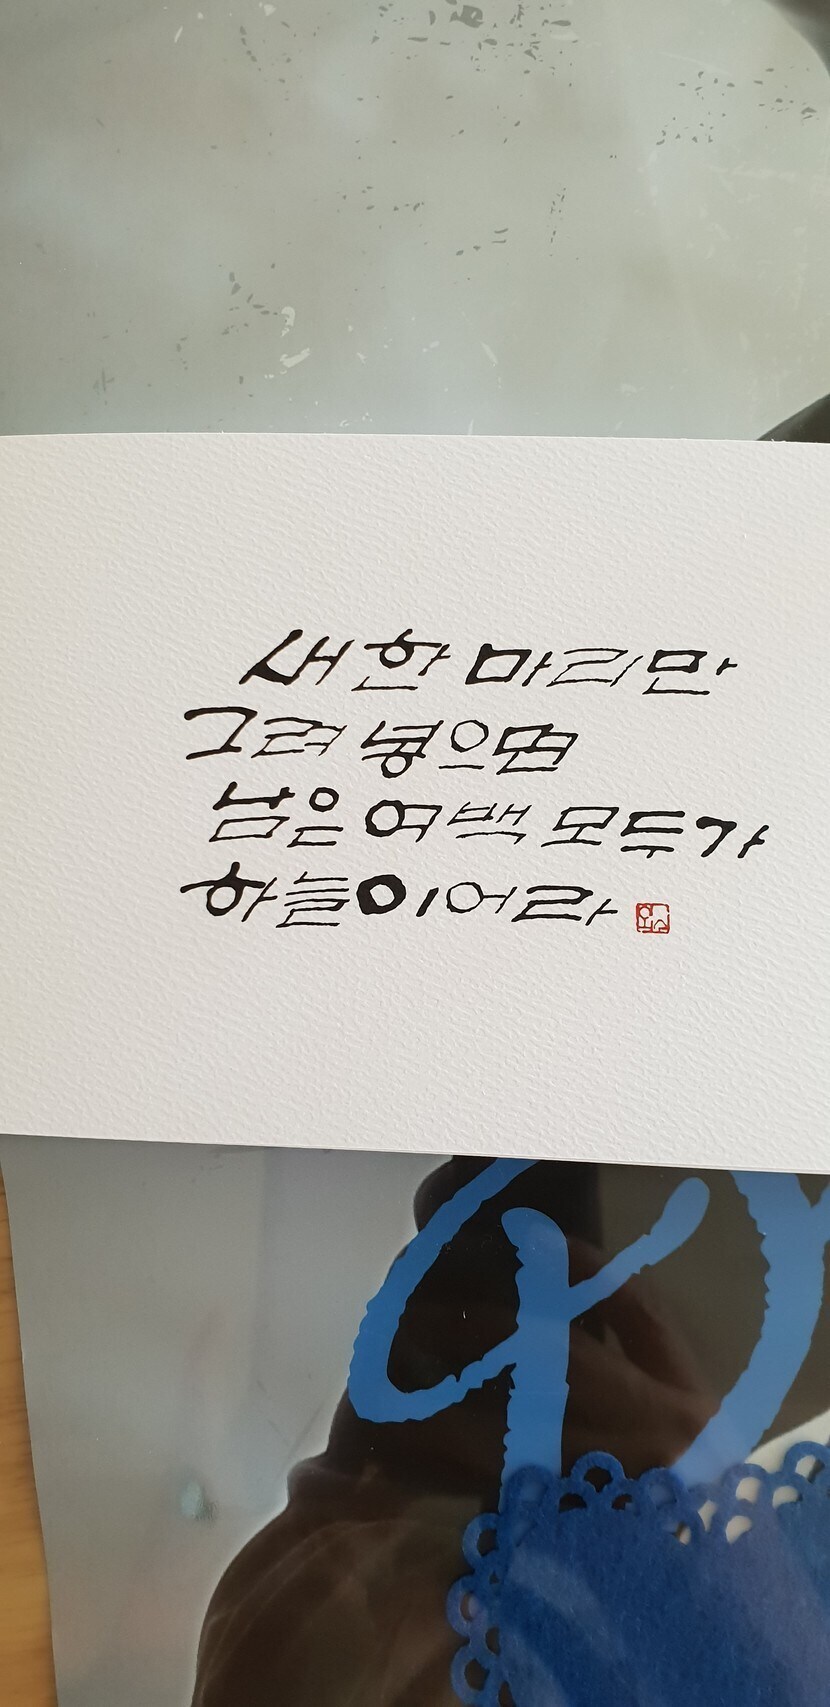 새 한 마리만
그려 넣으면
남은 여백 모두가
하늘이어라